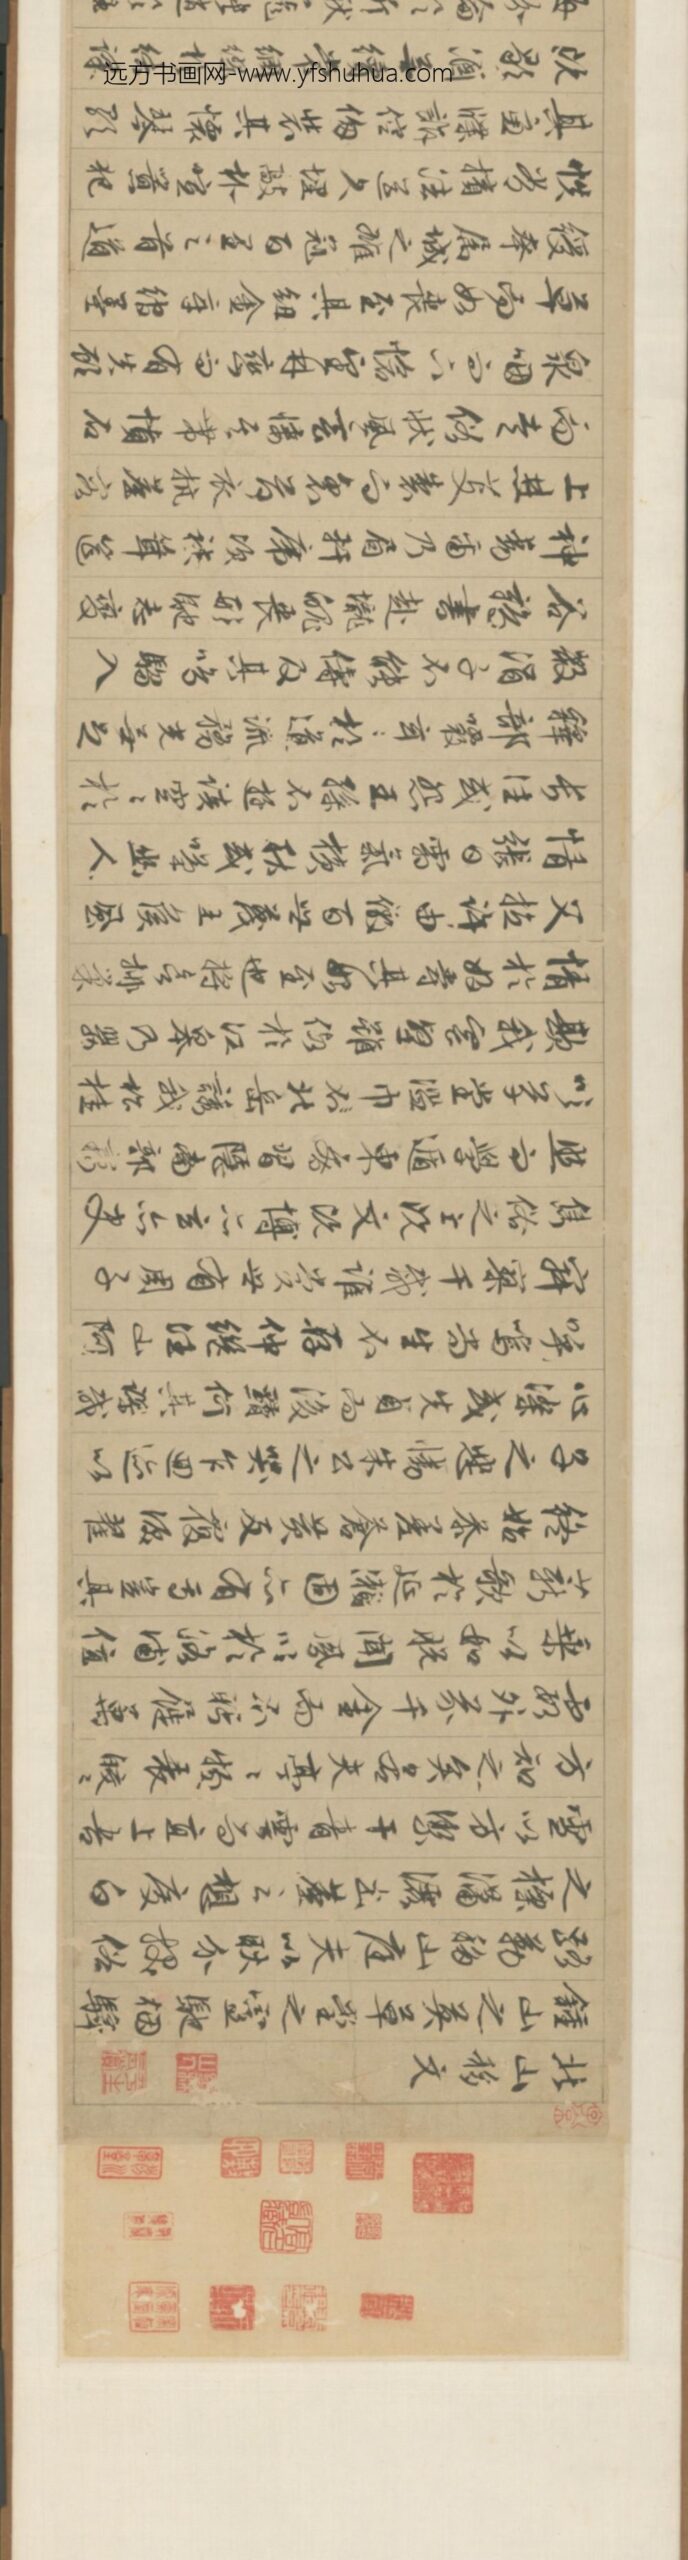 北山移文
鍾山之英草堂之靈馳煙驛
路勒移山庭夫以耿介拔俗
之標瀟灑出塵之想度白
雪以方潔干青雲而直上吾
方知之矣若夫亭〻物表皎〻
霞外芥千金而不盼屣萬
乘以如脫聞鳳吹於洛浦值
薪歌於延瀨固亦有焉豈其
終始參差蒼黃反覆淚翟
子之悲慟朱公之哭乍迴迹以
心染或先貞而後黷何其謬哉
嗚呼尚生不存仲既往山阿
寂寥千載誰賞世有周子
雋俗之士既文既博亦玄亦史
然而學遁東魯習隱南郭竊
吹草堂濫巾北岳誘我松桂
欺我雲壑雖假於江皋乃纓
情於好爵其始至也將欲排巢
父拉許由傲百世蔑王侯風
情張日霜氣橫秋或嘆幽人
長往或怨王孫不遊談空〻於
釋部覈玄〻於道流務光無足
數涓子不能儔及其鳴騶入
谷鶴書赴隴魄喪形馳志變
神動爾乃眉軒席次袂聳筵
上焚芰製而裂荷衣抗塵容
而走俗狀風雲悽其帶憤石
泉咽而下愴望林巒而有失顧
草而如喪至其紐金章綰墨
綬屬城之雄冠百里之首道
帙長擯法筵久埋敲扑諠囂犯
其慮牒訴倥傯裝其懷琴歌
既斷酒賦無續常綢繆於結課
远方书画网-www.yfshuhua.com